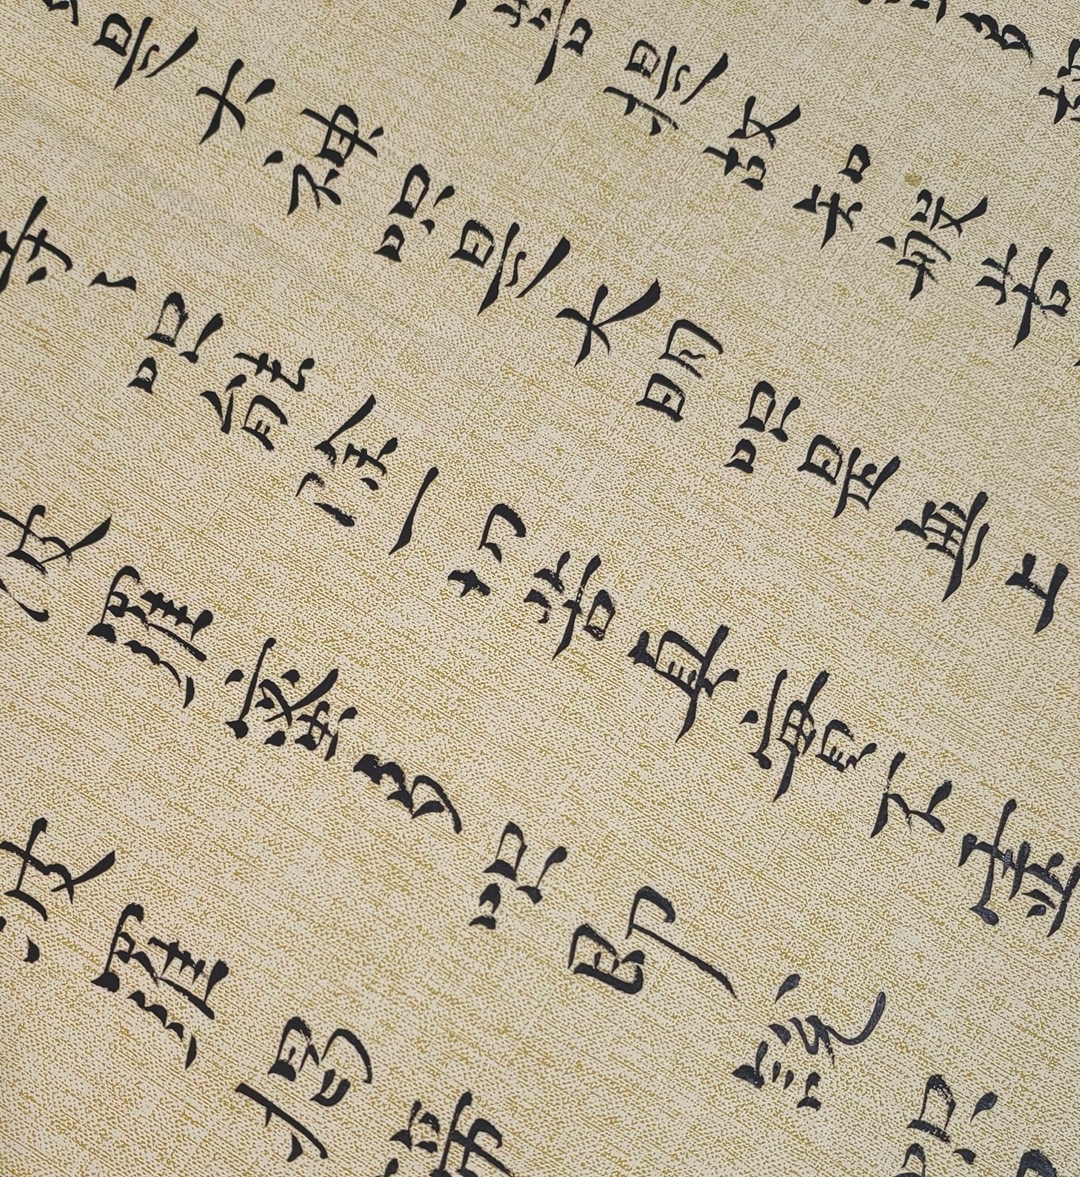 多
菩提故知般若
是大神呪是大明呪是無上
等〻呪能除一切苦真實不虛
波羅蜜多呪即說呪
波羅揭諦